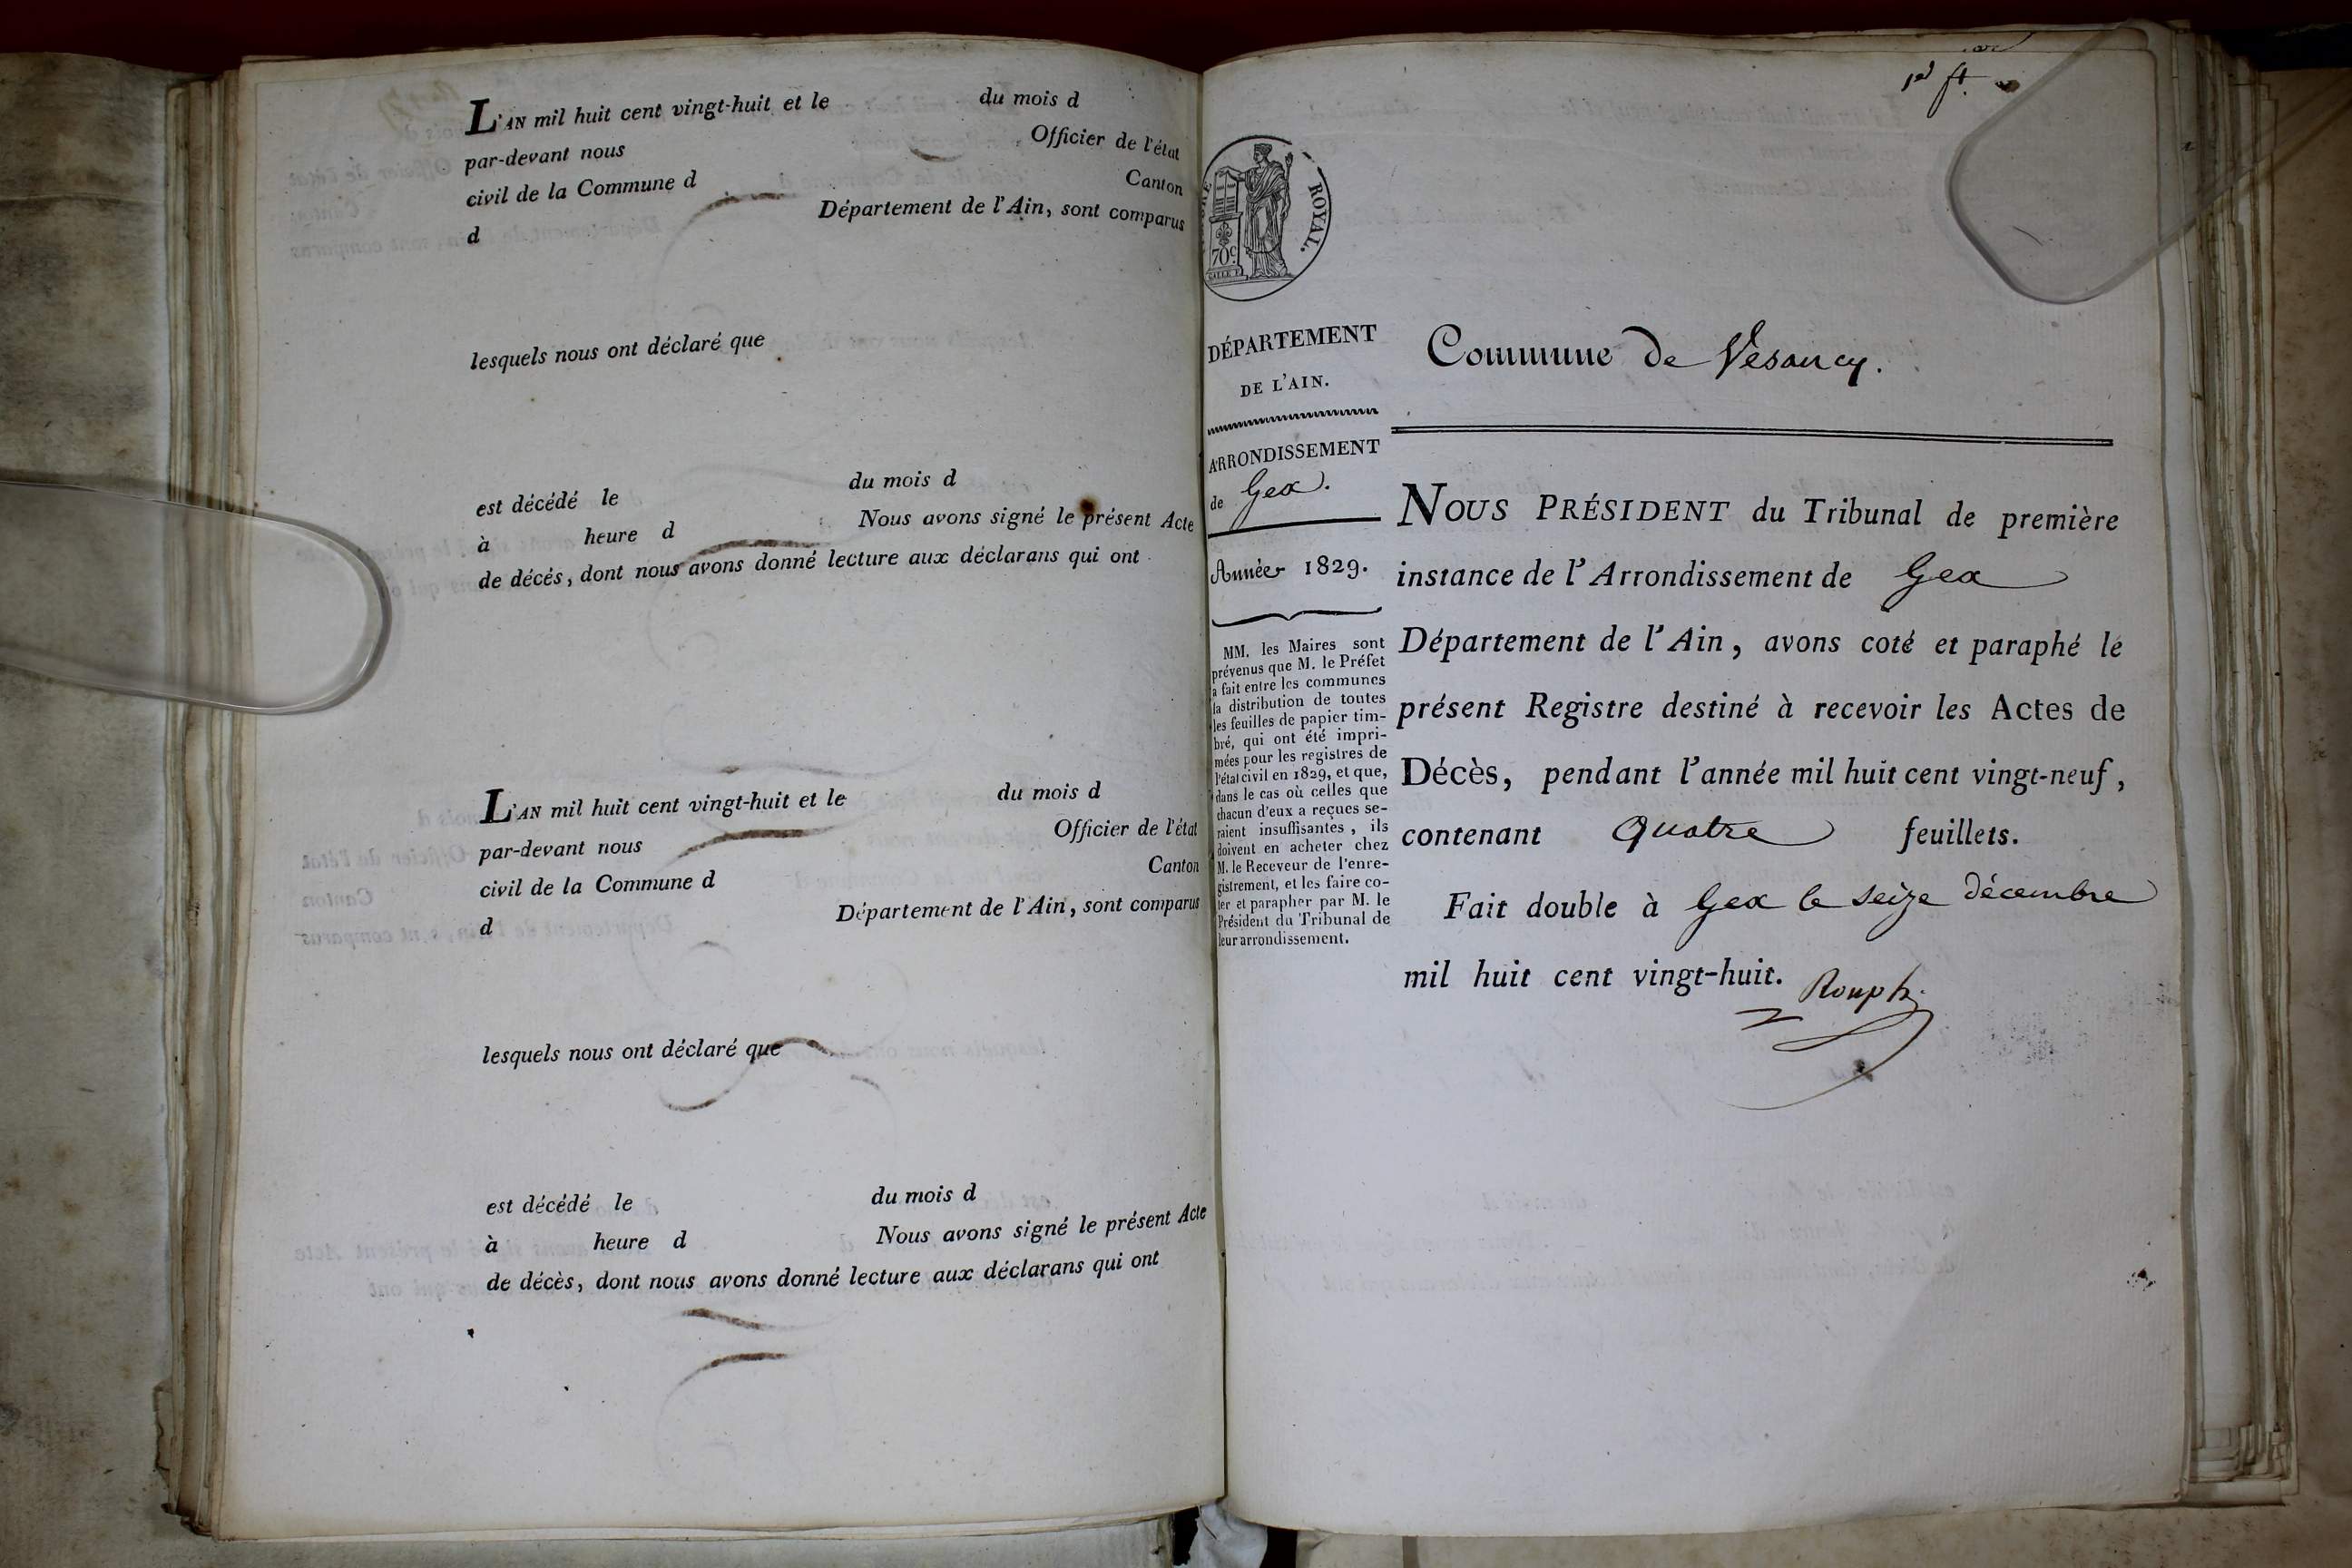 L'AN mil huit cent vingt-huit et le du mois d
par-devant nous Officier de l'état
civil de la Commune d Canton
d Département de l'Ain, sont comparus
lesquels nous ont déclaré que
est décédé le du mois d
à heure d Nous avons signé le présent Acte
de décés, dont nous avons donné lecture aux déclarans qui ont
L'AN mil huit cent vingt-huit et le du mois d
par-devant nous Officier de l'état
civil de la Commune d Canton
d Département de l'Ain, sont comparus
lesquels nous ont déclaré que
est décédé le du mois d
à heure d Nous avons signé le présent Acte
de décès, dont nous avons donné lecture aux déclarans qui ont
ROYAL.
70c.
DÉPARTEMENT
DE L'AIN.
ARRONDISSEMENT
de Gex.
Année 1829.
MM. les Maires sont
prévenus que M. le Préfet
a fait entre les communes
la distribution de toutes
les feuilles de papier tim-
bré, qui ont été impri-
mées pour les registres de
l'état civil en 1829, et que,
dans le cas où celles que
chacun d'eux a reçues se-
raient insuffisantes, ils
doivent en acheter chez
M. le Receveur de l'enre-
gistrement, et les faire co-
ter et parapher par M. le
Président du Tribunal de
leur arrondissement.
1er ft.
Commune de Vesancy.
NOUS PRÉSIDENT du Tribunal de première
instance de l'Arrondissement de Gex
Département de l'Ain, avons coté et paraphé le
présent Registre destiné à recevoir les Actes de
Décès, pendant l'année mil huit cent vingt-neuf,
contenant Quatre feuillets.
Fait double à Gex le seize décembre
mil huit cent vingt-huit.